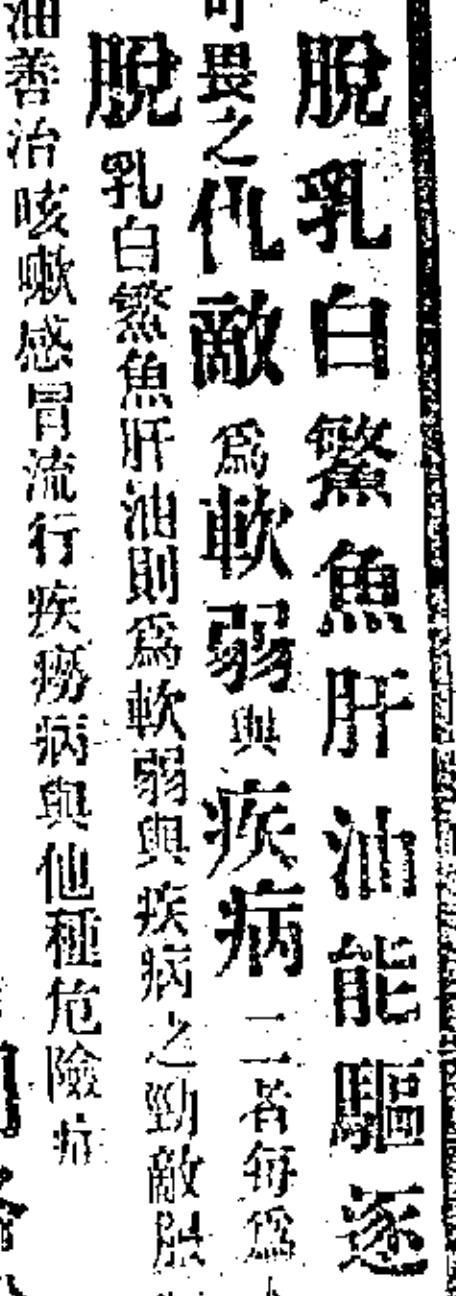 脫乳白鰵魚肝油能驅逐
可畏之仇敵爲軟弱與疾病二者每爲
脫乳白鰵魚肝油則爲軟弱與疾病之勁敵
油善治咳嗽感冒流行疾癆病與他種危險